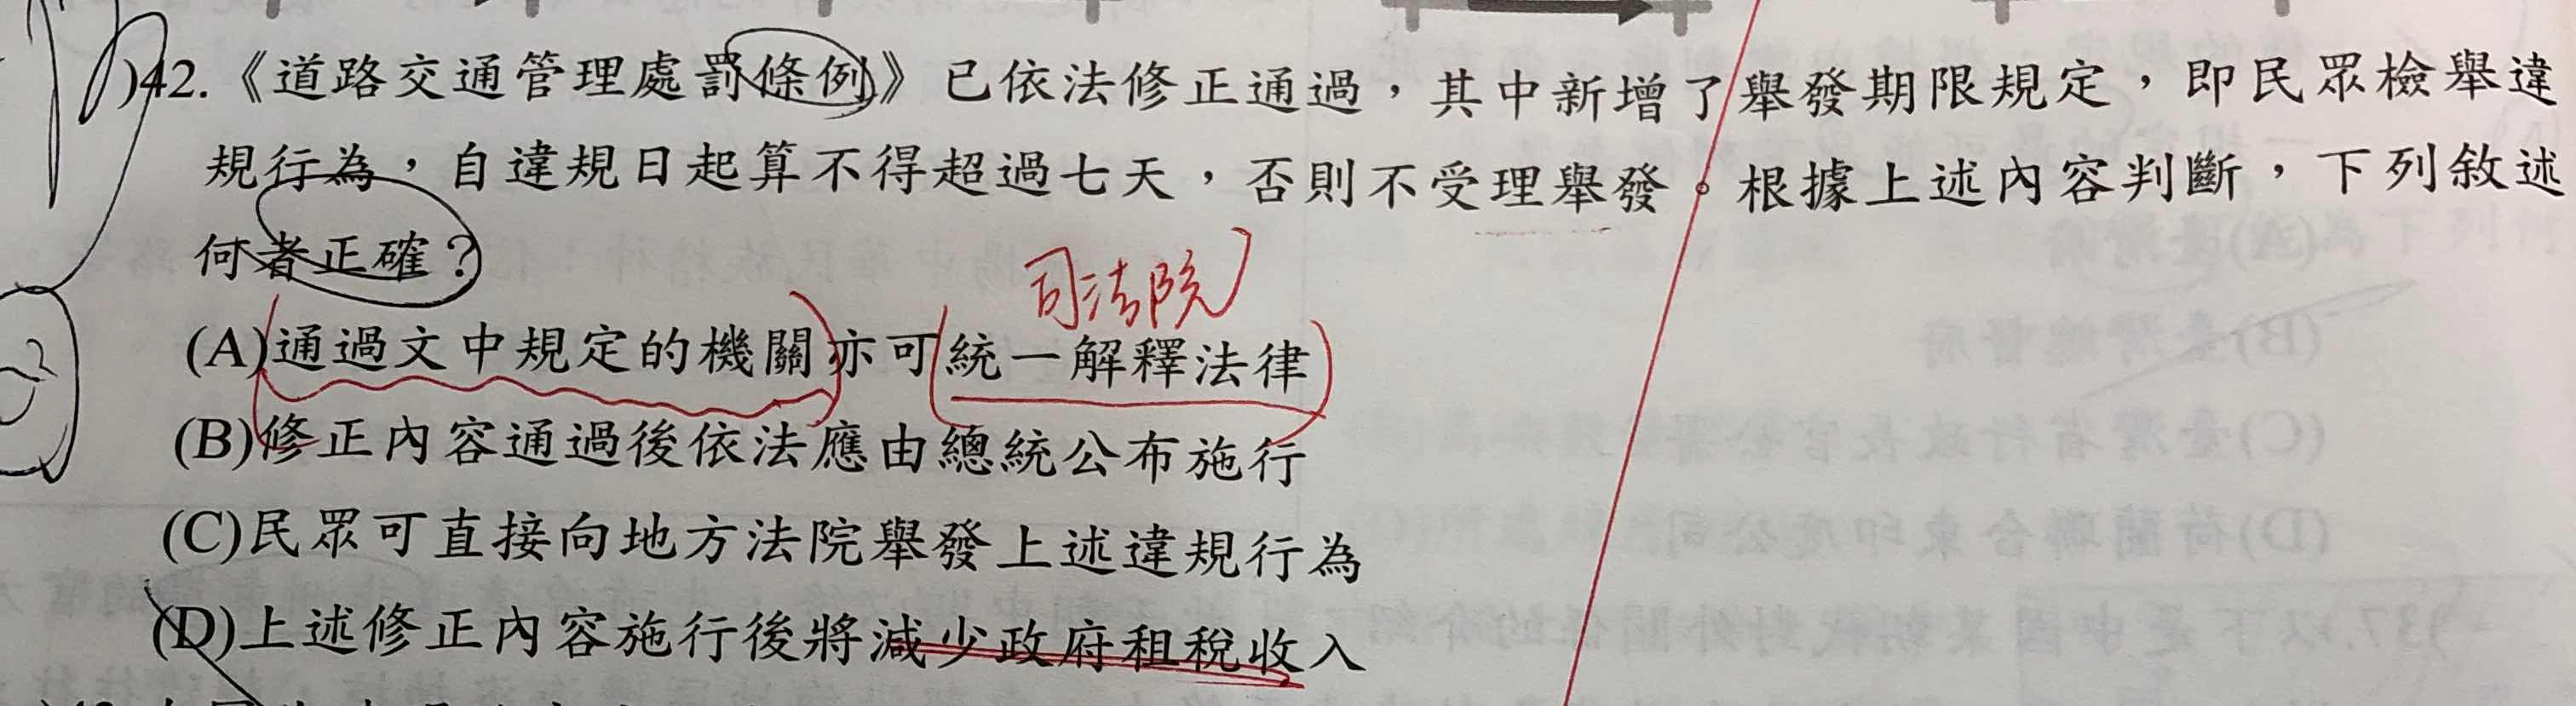 )42.《道路交通管理處罰條例》已依法修正通過，其中新增了舉發期限規定，即民眾檢舉違
規行為，自違規日起算不得超過七天，否則不受理舉發。根據上述內容判斷，下列敘述
何者正確？
司法院
(A)通過文中規定的機關亦可統一解釋法律
(B)修正內容通過後依法應由總統公布施行
(C)民眾可直接向地方法院舉發上述違規行為
(D)上述修正內容施行後將減少政府租稅收入